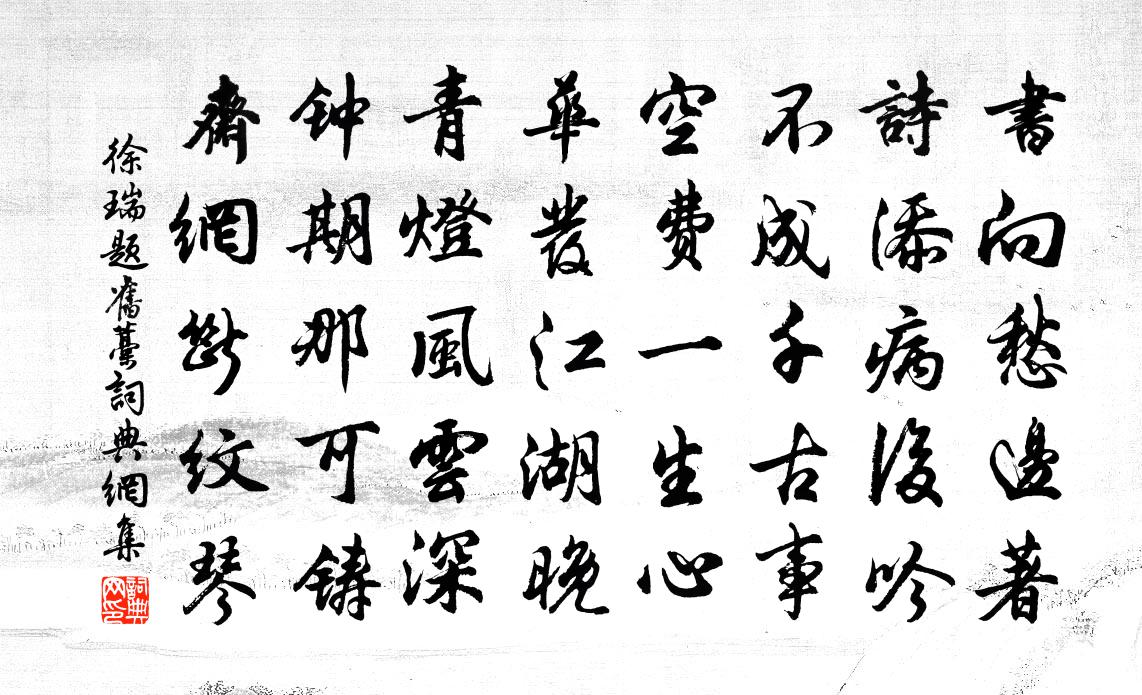 書向愁邊著
詩添病後吟
不成千古事
空費一生心
華發江湖晚
青燈風雲深
钟期那可铸
齋網斷紋琴
徐瑞题舊藁詞典網集
詞典网印